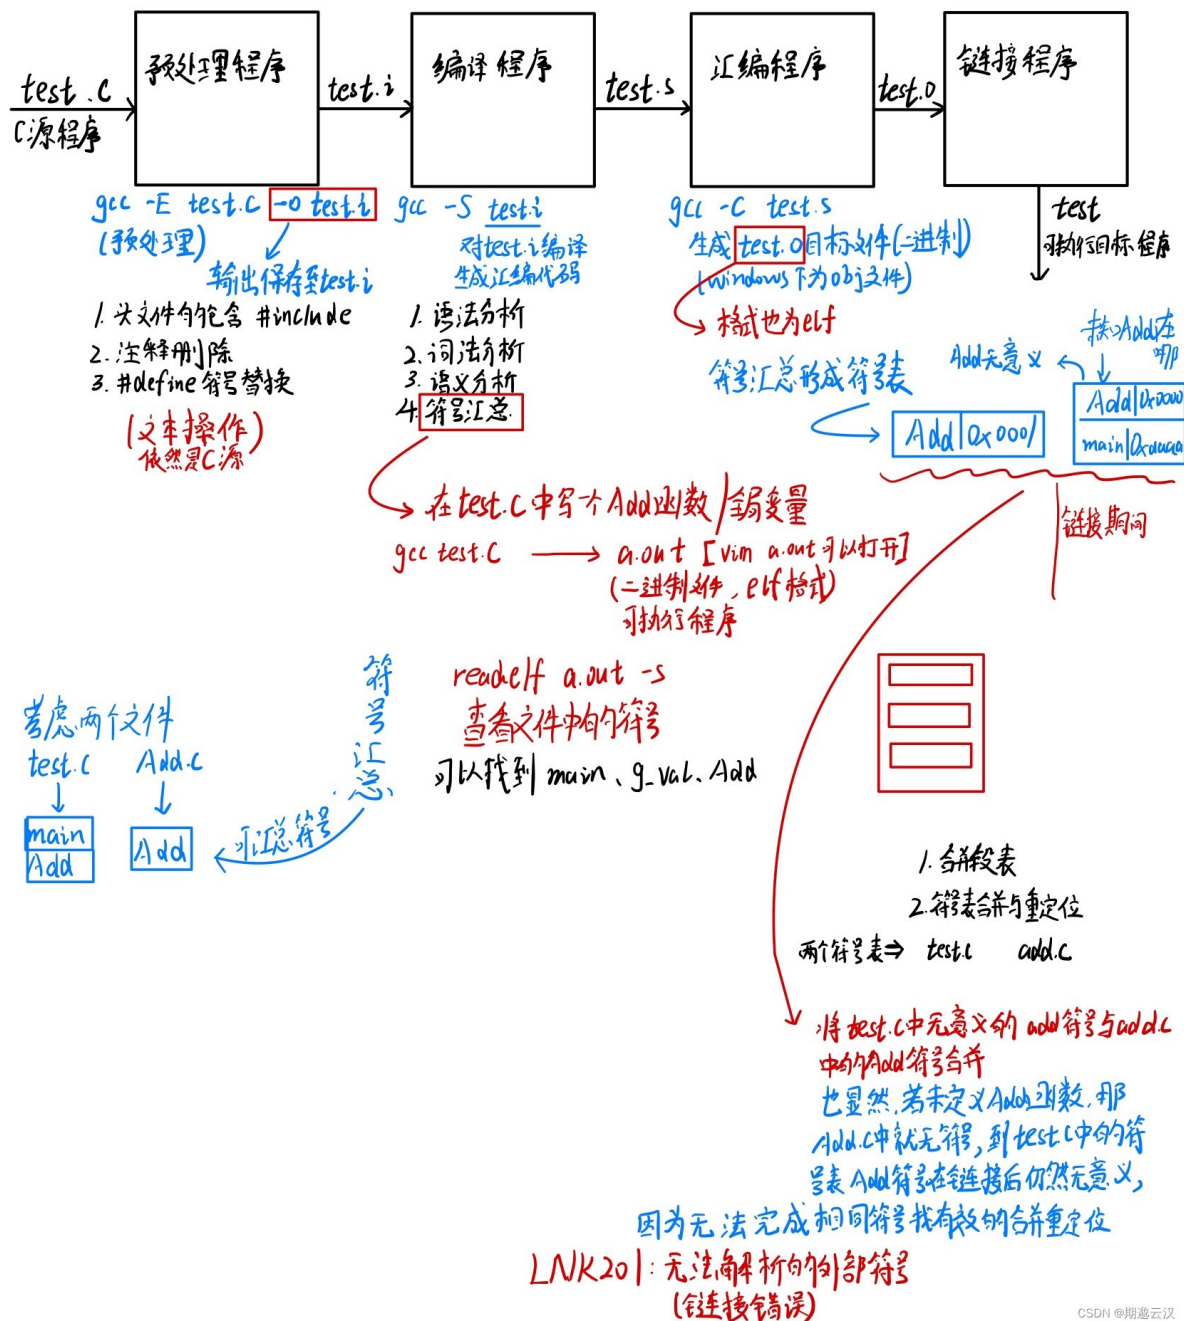 预处理程序
编译程序
汇编程序
链接程序
test.c
C源程序
test.i
test.s
test.o
gcc -E test.c -o test.i
(预处理)
输出保存至test.i
1. 头文件的包含 #include
2. 注释删除
3. #define 符号替换
(文本操作)
依然是C源
gcc -S test.i
对test.i编译
生成汇编代码
1. 语法分析
2. 词法分析
3. 语义分析
4. 符号汇总
gcc -C test.s
生成 test.o目标文件(二进制)
(windows下为obj文件)
格式也为elf
符号汇总形成符号表
Add|0x0001
test
可执行目标程序
Add无意义
Add在
Add|0x0000
main|0xaaaa
链接期间
在test.c中写个Add函数/全局变量
gcc test.c
a.out [vim a.out可以打开]
(二进制文件, elf格式)
可执行程序
readelf a.out -s
查看文件中的符号
可以找到 main、g_val、Add
符号汇总
考虑两个文件
test.c Add.c
main
Add
Add
可汇总符号
1. 合并段表
2. 符号表合并与重定位
两个符号表⇒ test.c add.c
将test.c中无意义的add符号与add.c
中的Add符号合并
也显然,若未定义Add函数,那
Add.c中就无符号,到test.c中的符
号表Add符号在链接后仍然无意义,
因为无法完成相同符号找有效的合并重定位
LNK201:无法解析的外部符号
(链接错误)
CSDN @期邀云汉